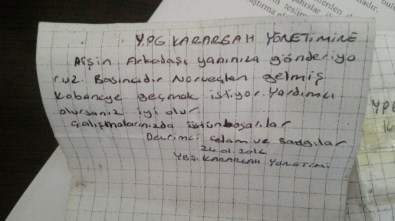 YPG KARARGAH YÖNETİMİNE
Arşin Arkadaşı yanınıza gönderiyo
ruz. Basıncıdır Norveçten gelmiş
Kobaneye geçmak istiyor. Yardımcı
olursanız iyi olur
Çalışmalarınızda üstün başalılar
Devrimci selam ve saygılar
YBŞ. KARARGAH YÖNETİMİ
YPG